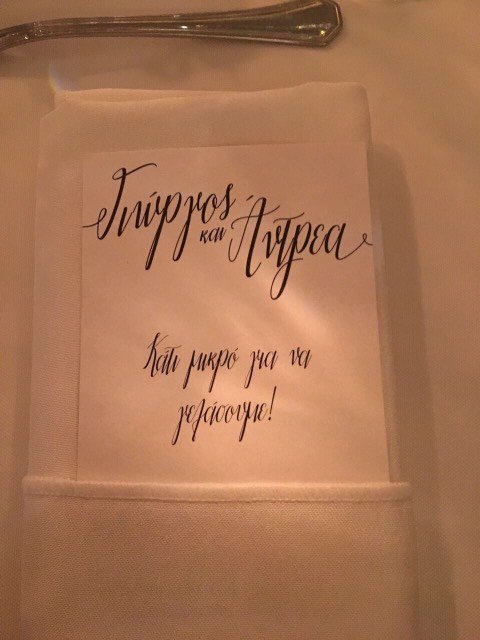 Γιώργος και Άντρεα
Κάτι μικρό για να
γελάσουμε!